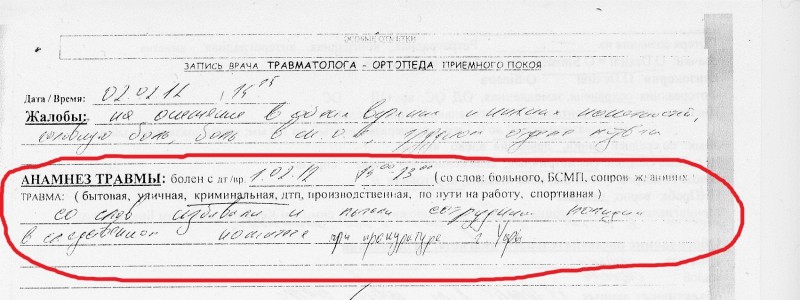 ОСОБЫЕ ОТМЕТКИ
ЗАПИСЬ ВРАЧА ТРАВМАТОЛОГА - ОРТОПЕДА ПРИЕМНОГО ПОКОЯ
Дата / Время: 02.02.12 , 15 25
Жалобы: на онемение в обеих верхних и нижних конечностей,
головную боль, боль в ш.о.п, грудном отделе
АНАМНЕЗ ТРАВМЫ: болен с дт/вр. 1.02.12 15 00 23 00 ( со слов: больного, БСМП, сопровождающих )
ТРАВМА: ( бытовая, уличная, криминальная, дтп, производственная, по пути на работу, спортивная )
со слов избивали и пытали сотрудники полиции
в следственном комитете при прокуратуре г. Уфы